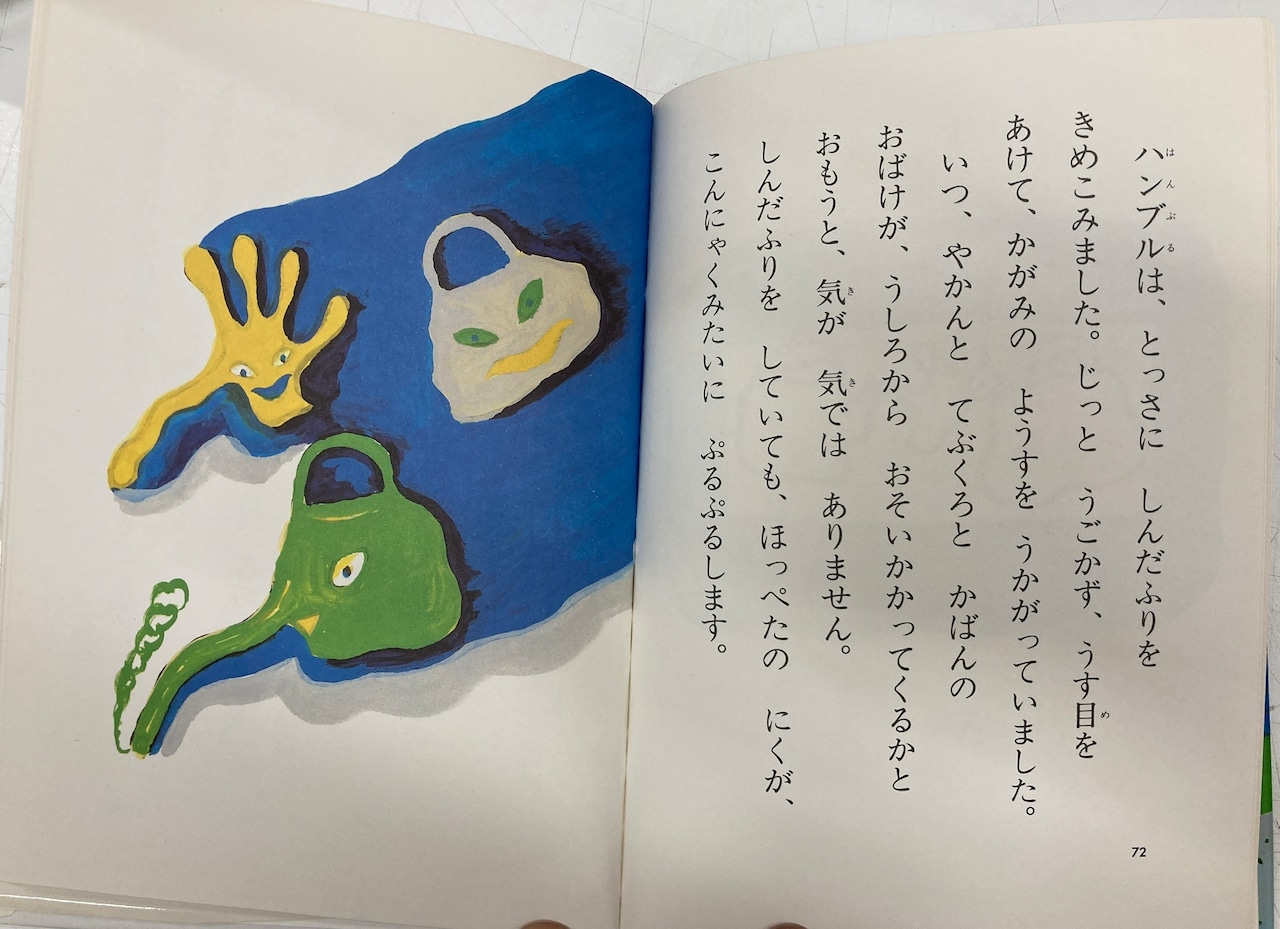 ハンブルは、とっさに　しんだふりを
きめこみました。じっと　うごかず、うす目を
あけて、かがみの　ようすを　うかがっていました。
いつ、やかんと　てぶくろと　かばんの
おばけが、うしろから　おそいかかってくるかと
おもうと、気が　気では　ありません。
しんだふりを　していても、ほっぺたの　にくが、
こんにゃくみたいに　ぷるぷるします。
72